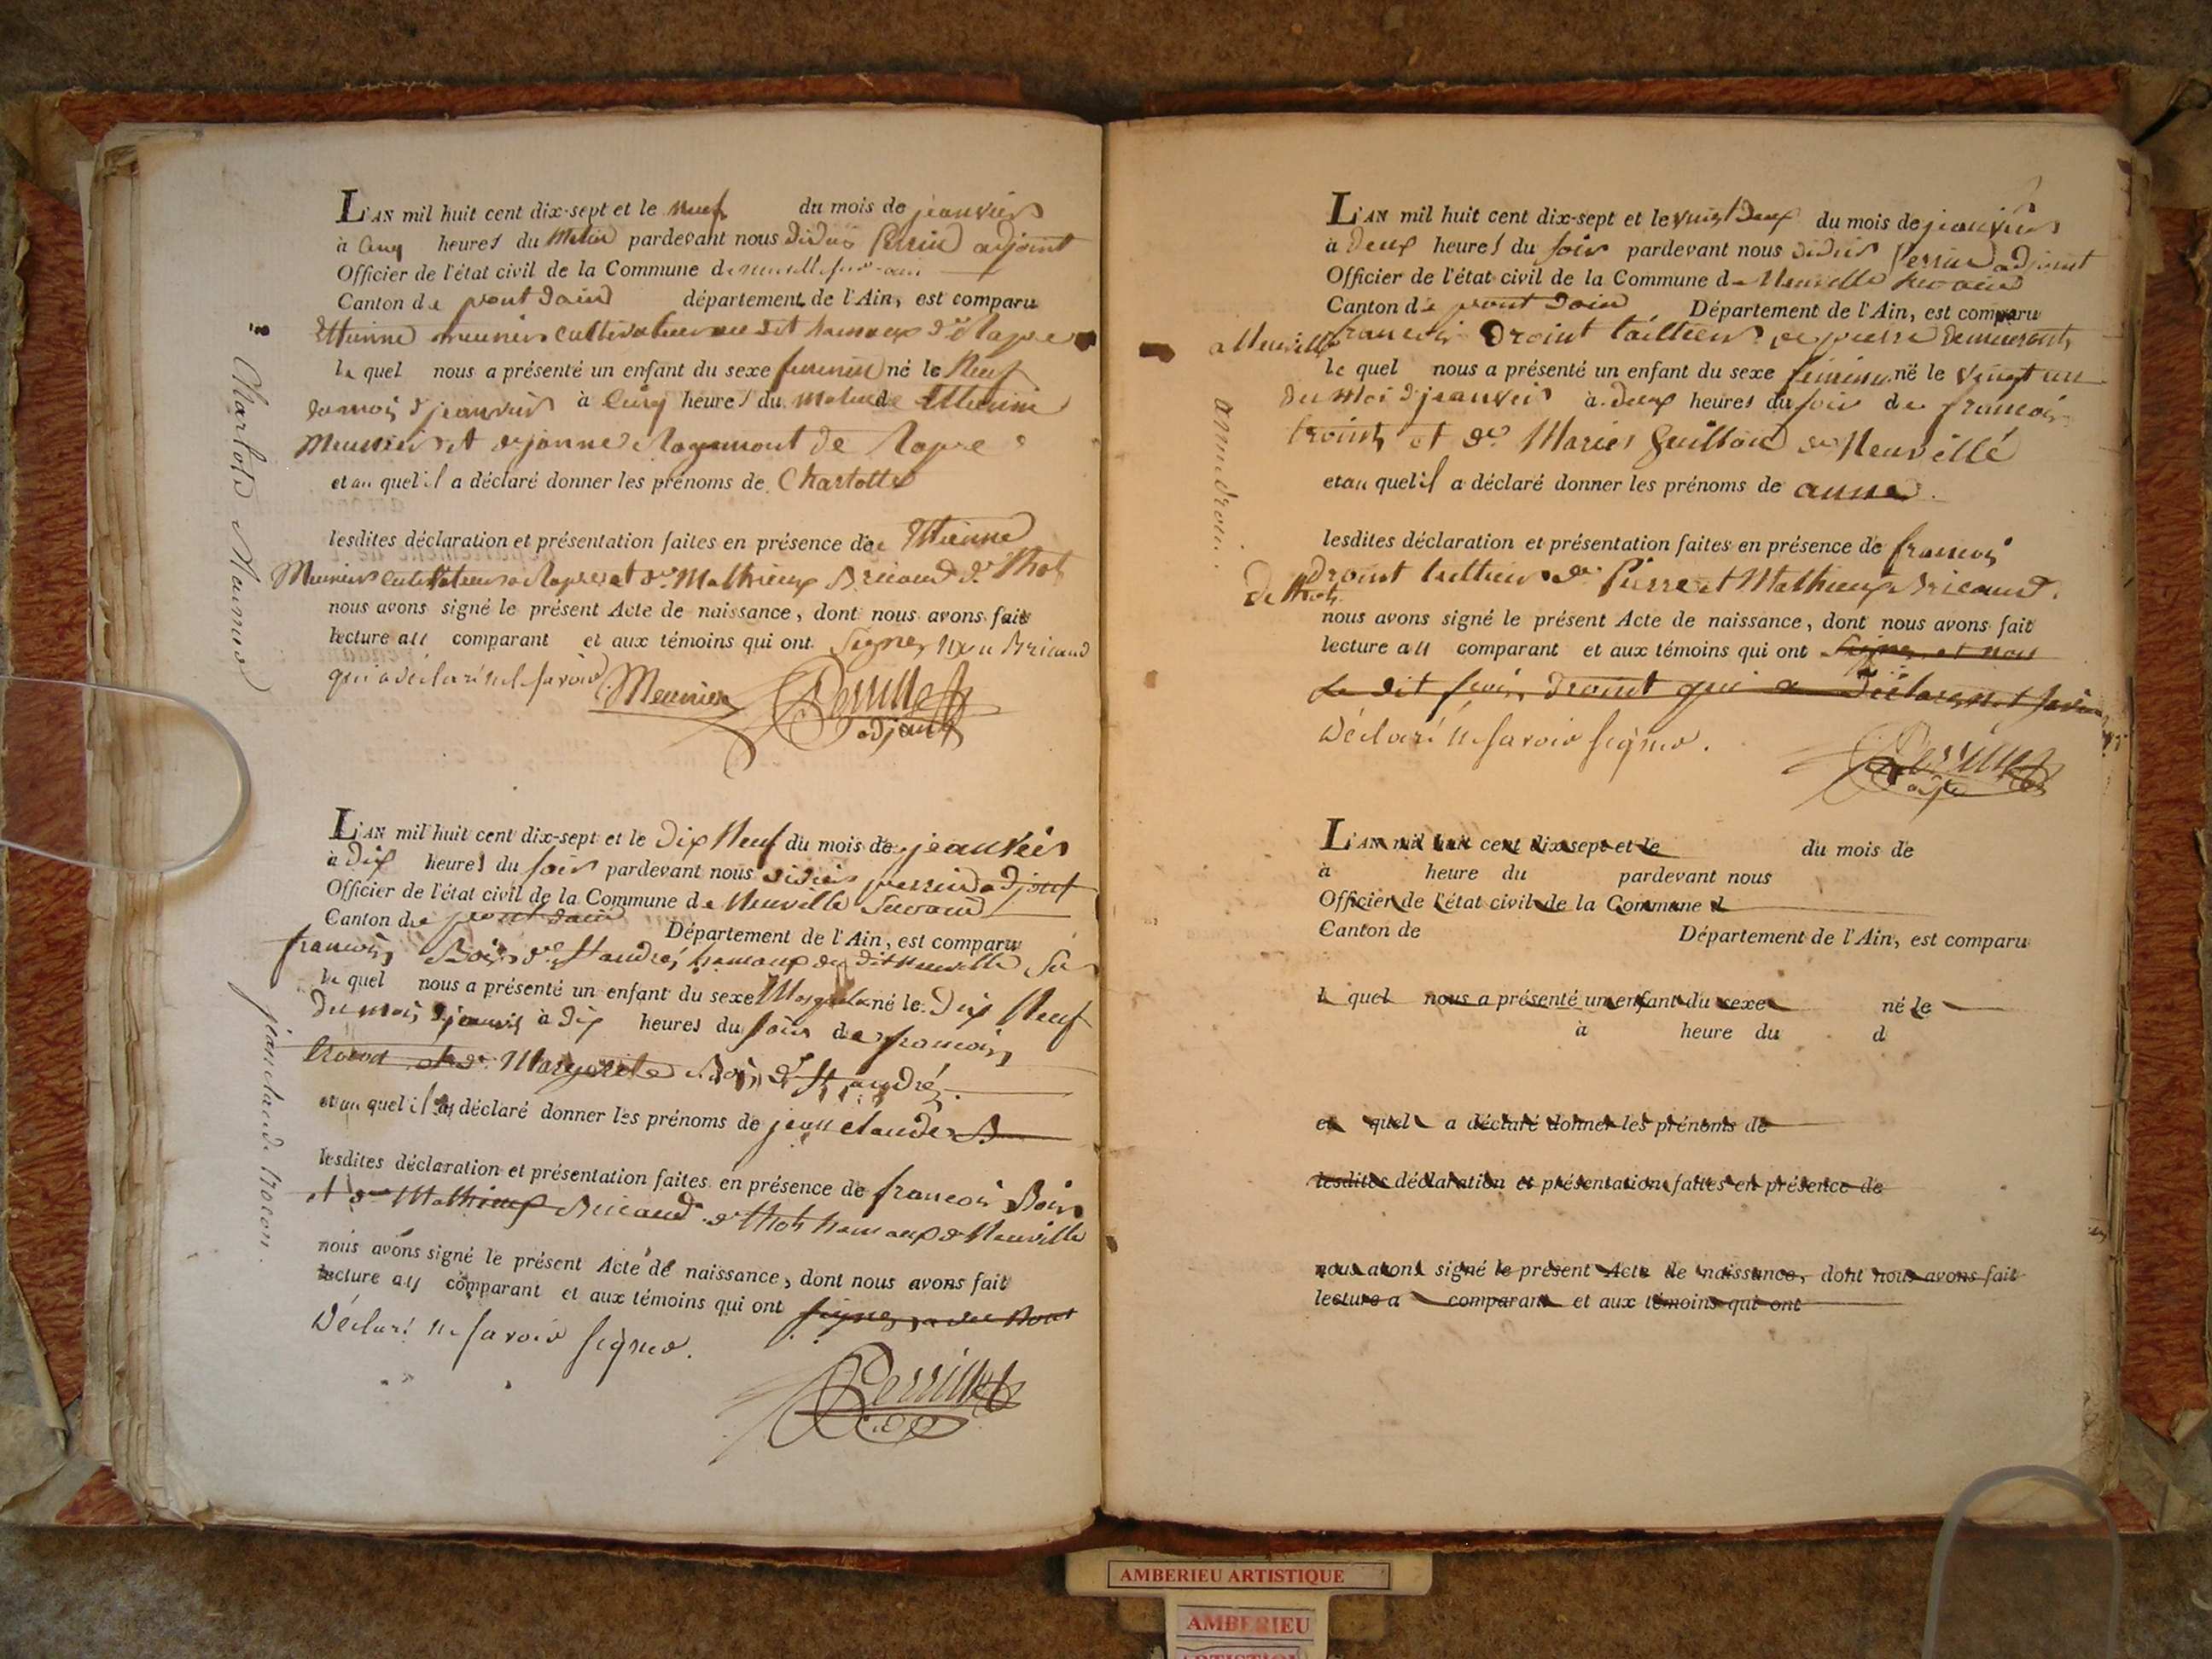 L'AN mil huit cent dix-sept et le neuf du mois de jeanvier
à cinq heures du matin pardevant nous didier Perrin adjoint
Officier de l'état civil de la Commune de neuville sur ain
Canton de pont dain département de l'Ain, est comparu
Ettienne meunier cultivateur au dit hameaux d Rapre
le quel nous a présenté un enfant du sexe feminin né le Neuf
du mois d jeanvier à cinq heures du matin de Ettienne
Meunier et de janne de Rapre
et au quel il a déclaré donner les prénoms de Charlotte
lesdites déclaration et présentation faites en présence de Ettienne
Meunier cultivateur a Rapre et de Mathieux Bricaud de Thol
nous avons signé le présent Acte de naissance, dont nous avons fait
lecture au comparant et aux témoins qui ont signer non Bricaud
qui a déclaré ne le savoir. Meunier Perrin
adjoint
Charlote Meunier
L'AN mil huit cent dix-sept et le dix Neuf du mois de jeanvier
à dix heures du soir pardevant nous didier perrin adjoint
Officier de l'état civil de la Commune de Neuville sur ain
Canton de pont dain Département de l'Ain, est comparu
francois Bois de St andré hameaux du dit neuville
le quel nous a présenté un enfant du sexe Masquelin né le dix Neuf
du mois d jeanvier à dix heures du soir de francois
et de Marguerite Bois de St andré
et au quel il a déclaré donner les prénoms de jean claude
lesdites déclaration et présentation faites en présence de francois Bois
et de Mathieux Bricaud de Thol hameaux de Neuville
nous avons signé le présent Acte de naissance, dont nous avons fait
lecture au comparant et aux témoins qui ont signer
déclaré ne savoir signer.
Perrin
adj
jean claude
L'AN mil huit cent dix-sept et le vingt deux du mois de jeanvier
à deux heures du soir pardevant nous didier Perrin adjoint
Officier de l'état civil de la Commune de Neuville sur ain
Canton de pont dain Département de l'Ain, est comparu
francois Droint taillieur de pierre demeurant
a Neuville
le quel nous a présenté un enfant du sexe feminin né le vingt un
du moi d jeanvier à deux heures du soir de francois
troint et de Marie Guillon de Neuville
et au quel il a déclaré donner les prénoms de anne
lesdites déclaration et présentation faites en présence de francois
droint taillieur de Pierre et Mathieux Bricaud
de thol
nous avons signé le présent Acte de naissance, dont nous avons fait
lecture au comparant et aux témoins qui ont signer et non
le dit droint qui a déclaré ne savoir
déclaré ne savoir signer.
Perrin
adjt
anne droin
L'AN mil huit cent dix-sept et le du mois de
à heure du pardevant nous
Officier de l'état civil de la Commune d
Canton de Département de l'Ain, est comparu
l quel nous a présenté un enfant du sexe né le
à heure du d
et quel a déclaré donner les prénoms de
lesdites déclaration et présentation faites en présence de
nous avons signé le présent Acte de naissance, dont nous avons fait
lecture a comparant et aux témoins qui ont
AMBERIEU ARTISTIQUE
AMBERIEU
ARTISTIQUE